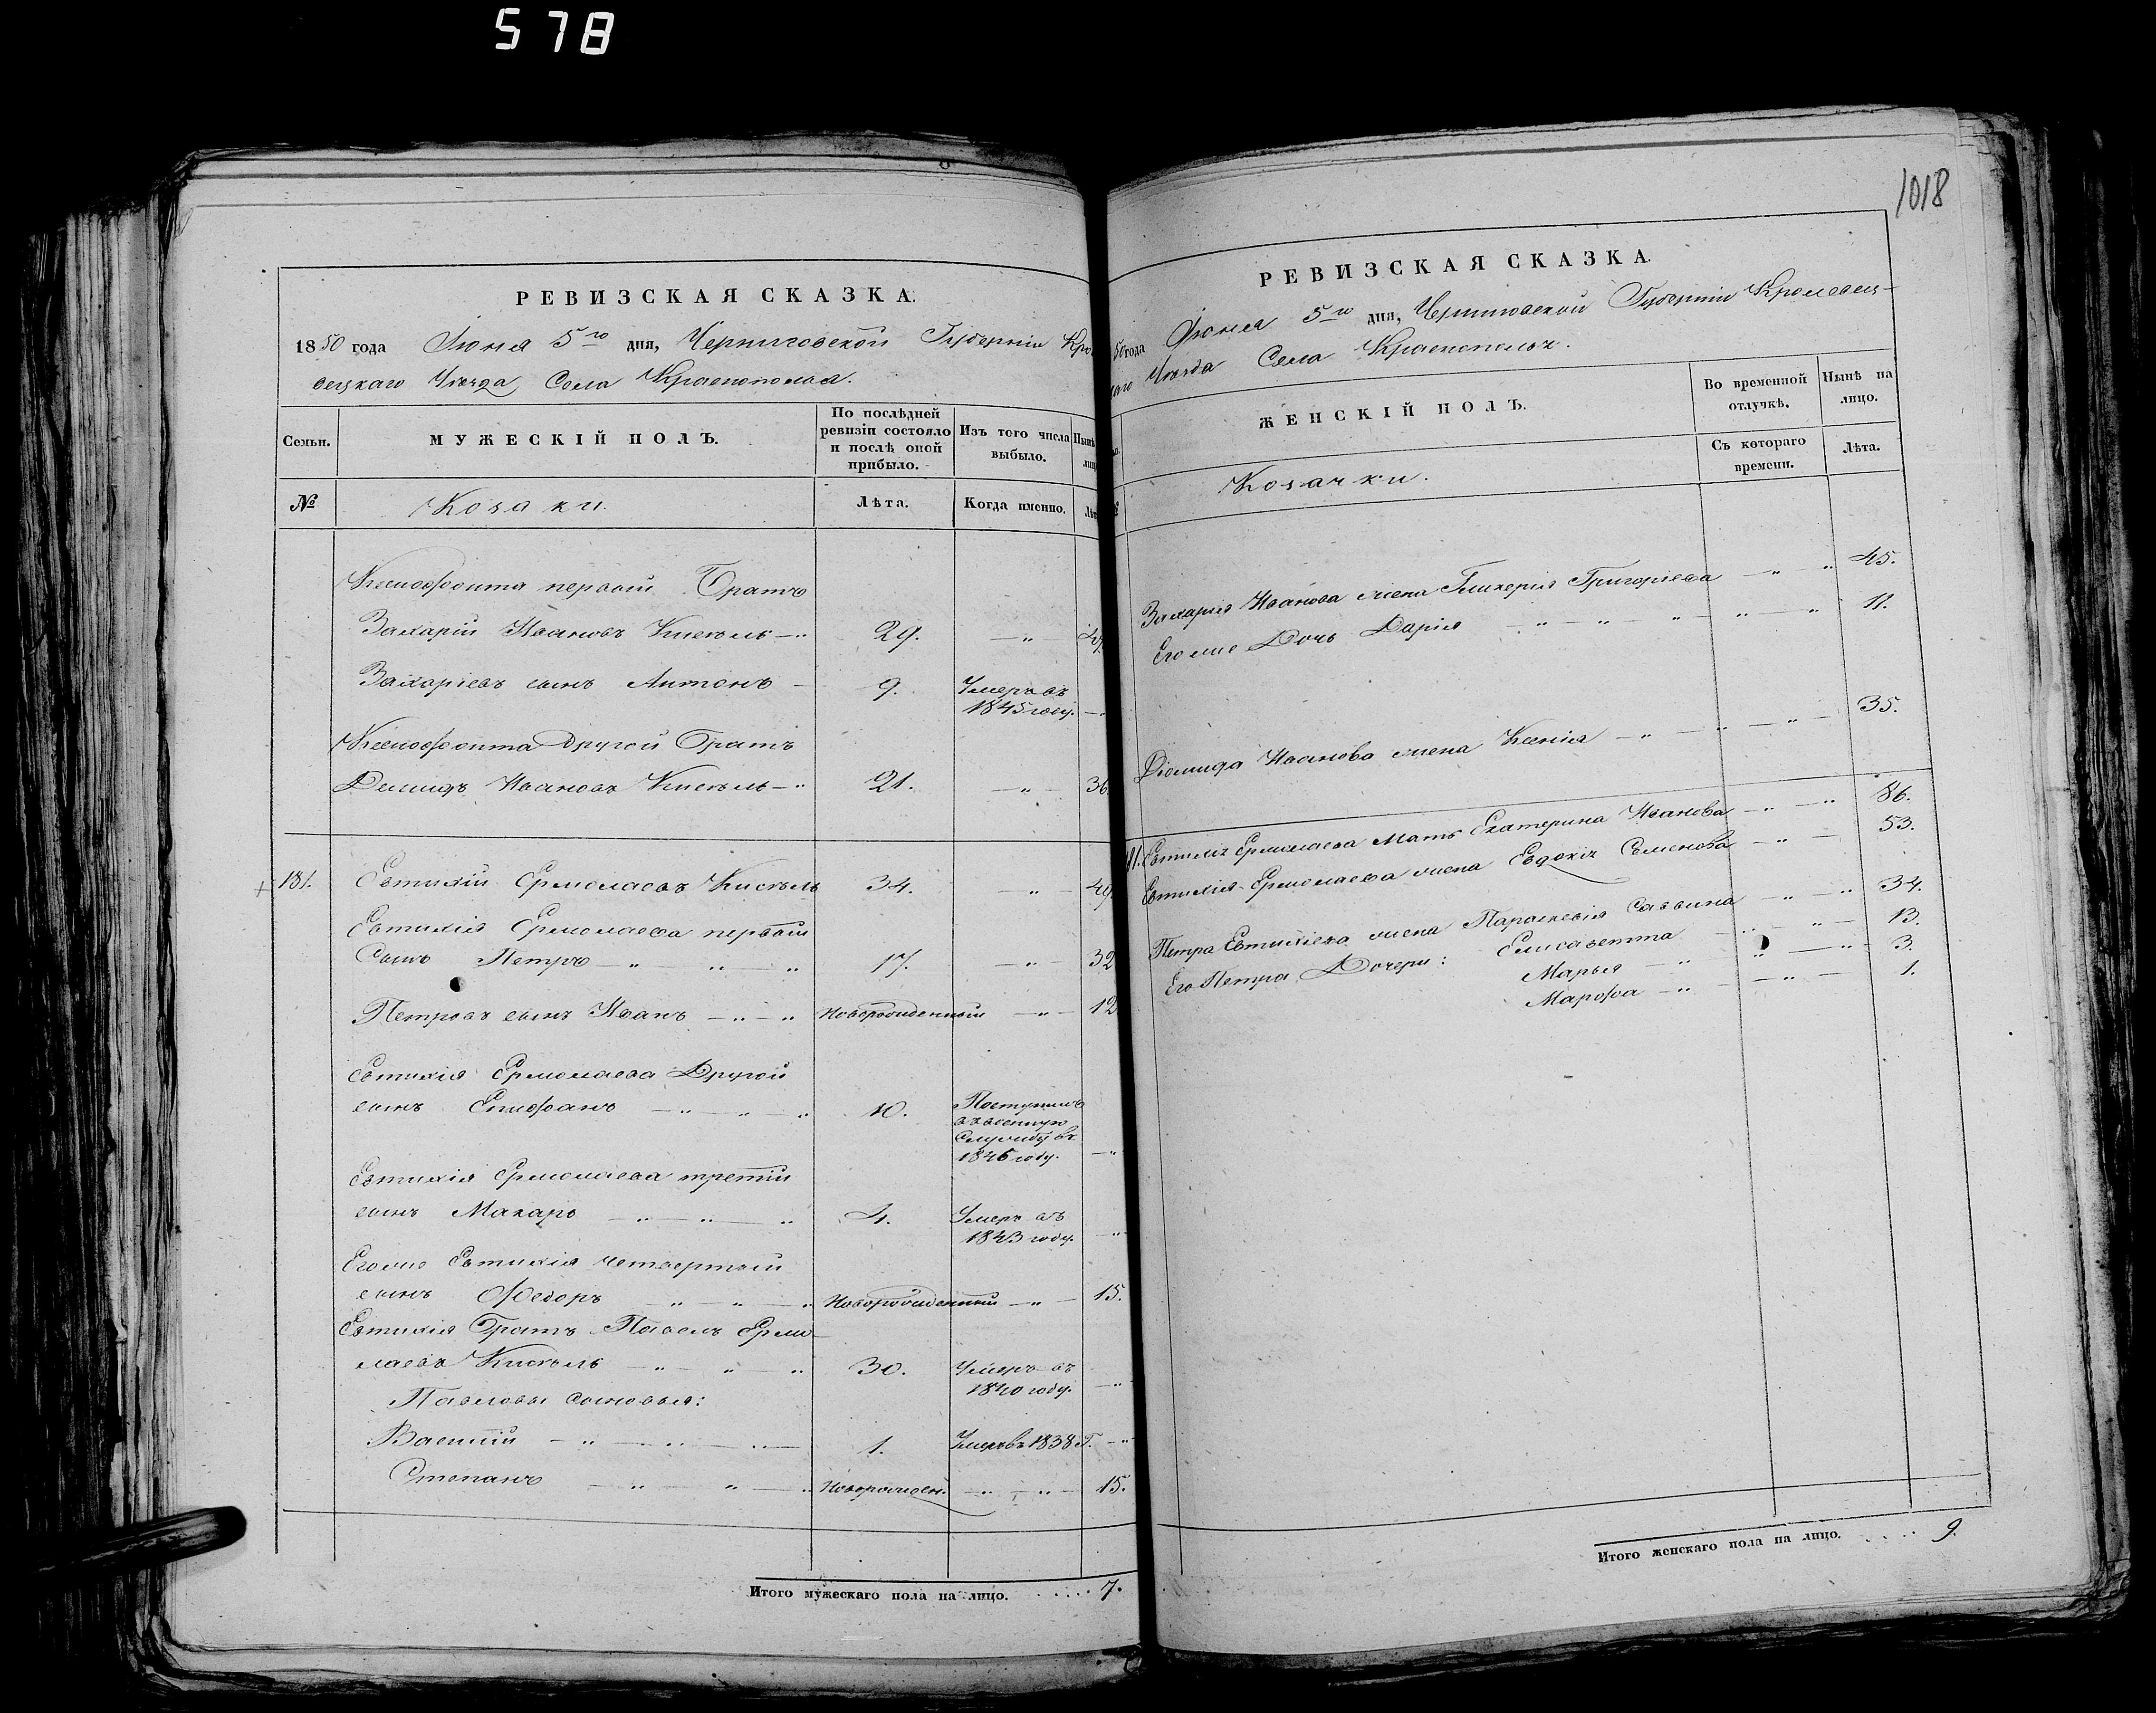 578
1018
РЕВИЗСКАЯ СКАЗКА.
1850 года Июня 5го дня, Черниговской Губерніи Кро
вецкаго Уѣзда, Села Краснополья.
Семьи.
МУЖЕСКІЙ ПОЛЪ.
По послѣдней ревизіи состояло и послѣ оной прибыло.
Изъ того числа выбыло.
Нынѣ лиц
№
Козаки.
Лѣта.
Когда именно.
Лѣт
Ксенофонта первый Братъ
Захарій Ивановъ Кисѣль —„ 29. —„
Захаріевъ сынъ Антонъ — 9. Умеръ въ
1845 году. —„
Ксенофонта другой Братъ
Демидъ Ивановъ Кисѣль —„ 21. —„— 36.
181. Евтихій Ермолаевъ Кисѣль 34. —„— 49.
Евтихія Ермолаева первый
Сынъ Петръ —„ „—„ 17. —„— 32
Петровъ сынъ Иванъ —„—„ Новорожденный —„— 12
Евтихія Ермолаева Другой
сынъ Епифанъ —„—„—„ 10. Поступилъ
въ военную
Службу въ
1846 году. —„
Евтихія Ермолаева третій
сынъ Макаръ —„—„—„ 4. Умеръ въ
1843 году. —„
Его же Евтихія четвертый
сынъ Федоръ —„—„—„ Новорожденный —„— 15.
Евтихія Братъ Павелъ Ермо—
лаевъ Кисѣль —„—„—„ 30. Умеръ въ
1840 году. —„
Павловы сыновья:
Василій —„—„—„— 1. Умеръ въ 1838 Г. —„
Степанъ —„—„—„ Новорожден. —„—„— 15.
Итого мужескаго пола на лицо. . . . . . 7.
РЕВИЗСКАЯ СКАЗКА.
50 года Июня 5го дня, Черниговской Губерніи Кролевец—
каго Уѣзда Села Краснополья.
ЖЕНСКІЙ ПОЛЪ.
Во временной отлучкѣ.
Нынѣ на лицо.
Съ котораго времени.
Лѣта.
Козачки.
Захарія Иванова жена Гликерія Григоріева —„ „ 45.
Его же Дочь Дарія —„—„—„—„—„ 11.
Діомида Иванова жена Ксенія —„—„—„— 35.
Евтихія Ермолаева Мать Екатерина Иванова —„—„ 86.
Евтихія Ермолаева жена Евдокія Семенова —„— 53.
Петра Евтихіева жена Параскевія Саввина —„—„ 34.
Его Петра Дочери: Елисаветта —„—„— 13.
Марья —„ „—„ 3.
Марфа —„—„— 1.
Итого женскаго пола на лицо. . . . . 9.